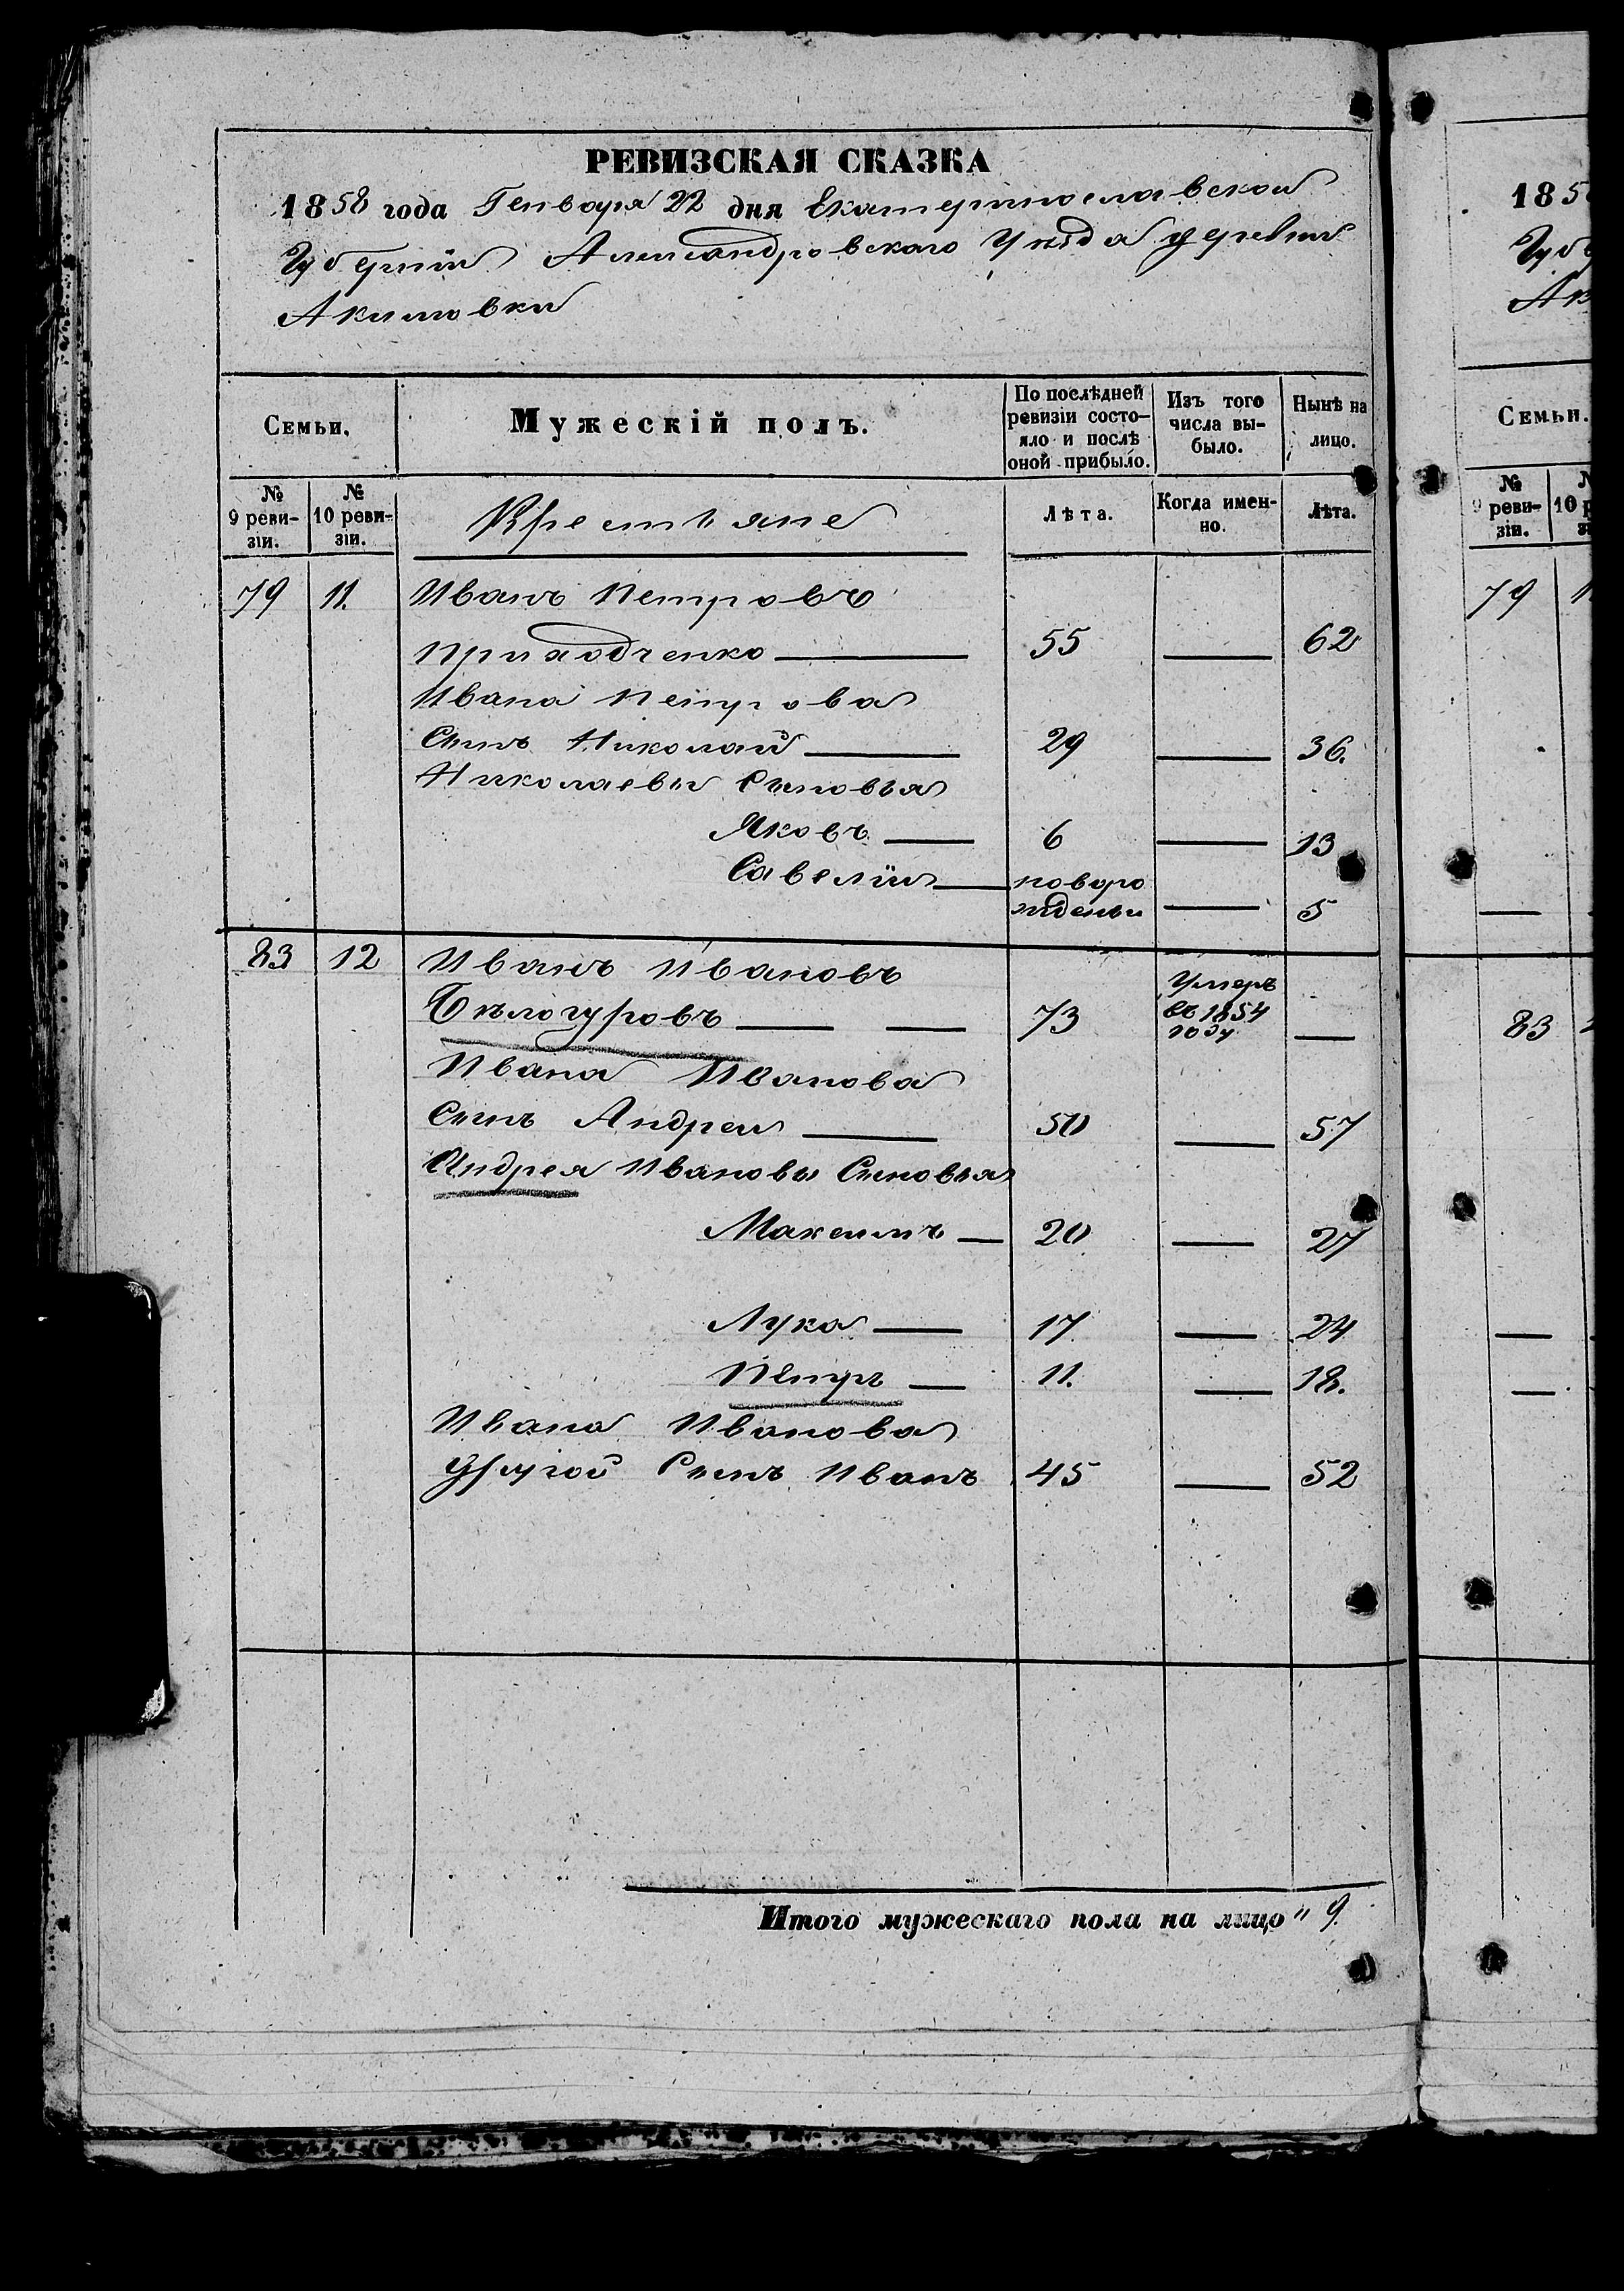 РЕВИЗСКАЯ СКАЗКА
1858 года Генваря 22 дня Екатеринославской
Губерніи Александровскаго Уѣзда деревни
Акимовки
Семьи.
Мужескій полъ.
По послѣдней ревизіи состо-
яло и послѣ оной прибыло.
Изъ того числа вы-
было.
Нынѣ на лицо.
№ 9 реви-
зіи.
№ 10 реви-
зіи.
Крестьяне
Лѣта.
Когда имен-
но.
Лѣта.
79 11. Иванъ Петровъ
Приходченко — 55 — 62
Ивана Петрова
Сынъ Николай — 29 — 36.
Николаевы Сыновья
Яковъ — 6 — 13
Савелій — новоро
жденъ — 5
83 12 Иванъ Ивановъ
Бѣлогуровъ — — 73 Умеръ въ 1854 году —
Ивана Иванова
Сынъ Андрей — 50 — 57
Андрея Иванова Сыновья
Максимъ — 20 — 27
Лука — 17 — 24
Петръ — 11. — 18.
Ивана Иванова
другой Сынъ Иванъ 45 — 52
Итого мужескаго пола на лицо „ 9.
185
Губ
Ак
Семьи.
№ 9 реви-
зіи.
10
79
83